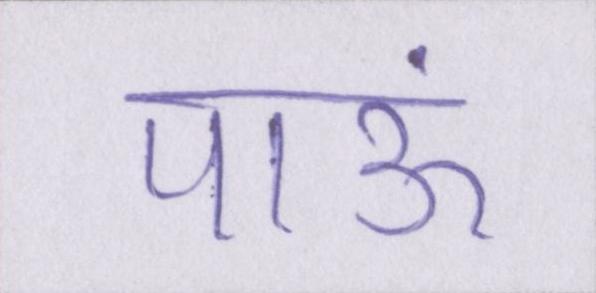 पाऊं